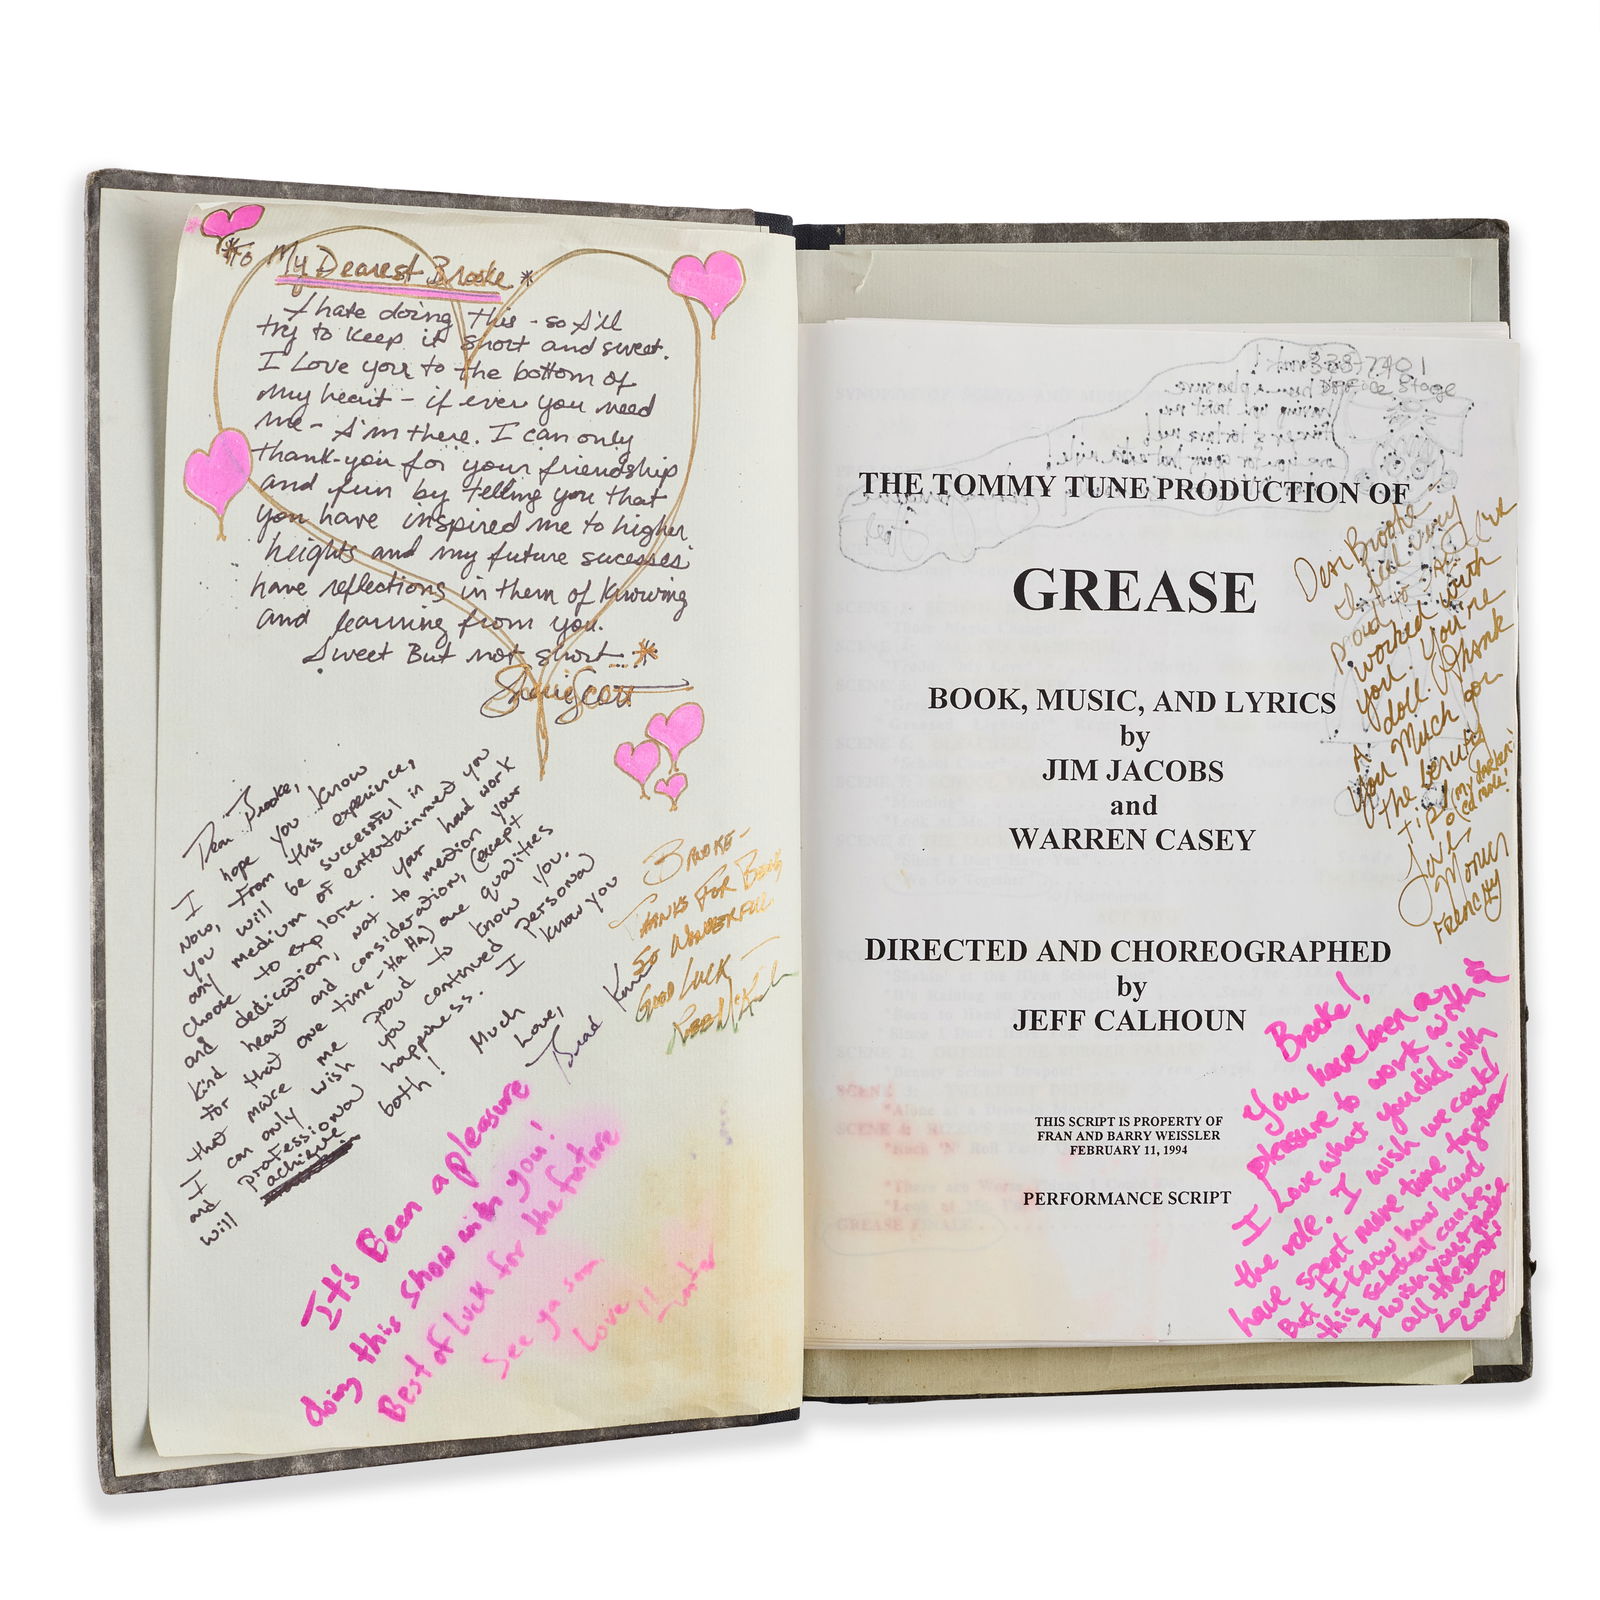 *To My Dearest Brooke*
I hate doing this - so I'll
try to keep it short and sweet.
I Love you to the bottom of
my heart - if ever you need
me - I'm there. I can only
thank-you for your friendship
and fun by telling you that
you have inspired me to higher
heights and my future sucesses
have reflections in them of Knowing
and learning from you.
Sweet But not short... *
Dear Brooke,
I hope you know
now, from this experience,
you will be successful in
any medium of entertainment you
choose to explore. Your hard work
and dedication, not to mention your
kind heart and consideration, (except
for that one time-Ha Ha) are qualities
that make me proud to know you.
I can only wish you continued personal
and professional happiness. I know you
will achieve both!
Much
Love,
BROOKE -
THANKS FOR BEING
SO WONDERFUL
GOOD LUCK -
It's Been a pleasure
doing this show with you!
Best of Luck for the future
See ya soon
Love
3387240 1
THE TOMMY TUNE PRODUCTION OF
GREASE
BOOK, MUSIC, AND LYRICS
by
JIM JACOBS
and
WARREN CASEY
DIRECTED AND CHOREOGRAPHED
by
JEFF CALHOUN
THIS SCRIPT IS PROPERTY OF
FRAN AND BARRY WEISSLER
FEBRUARY 11, 1994
PERFORMANCE SCRIPT
Dear Brooke
I feel very
proud to have
worked with
you. You're
A doll. Thank
You Much for
the beauty
tips
Love
FRENCHY
Brooke!
You have been a
pleasure to work with &
I Love what you did with
the role. I wish we could
have spent more time together
But I know how hard
this schedual can be.
I wish you
all the best
Love